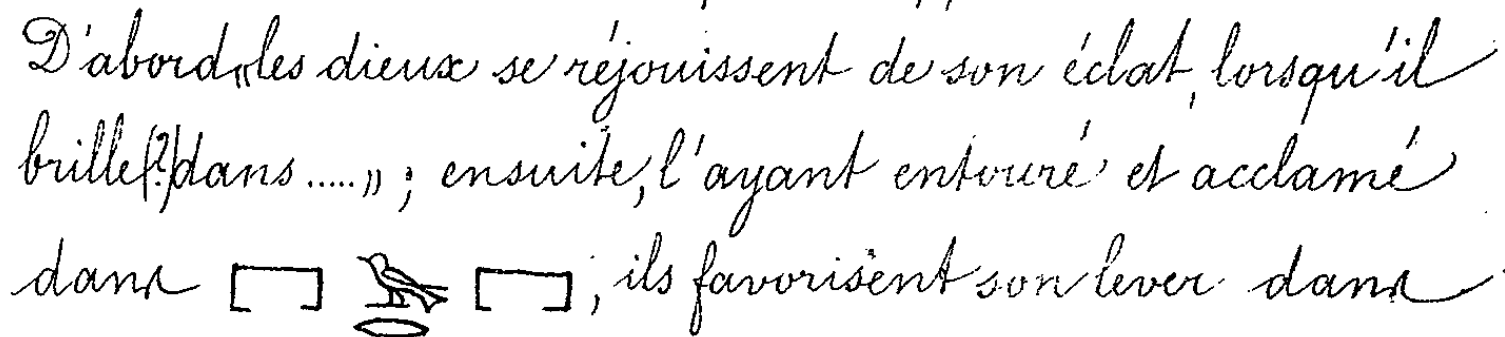 D'abord, „les dieux se réjouissent de son éclat, lorsqu'il
brille (?) dans ..... „ ; ensuite, l'ayant entouré et acclamé
dans 𓉐 𓅨𓂋 𓉐 ; ils favorisent son lever dans